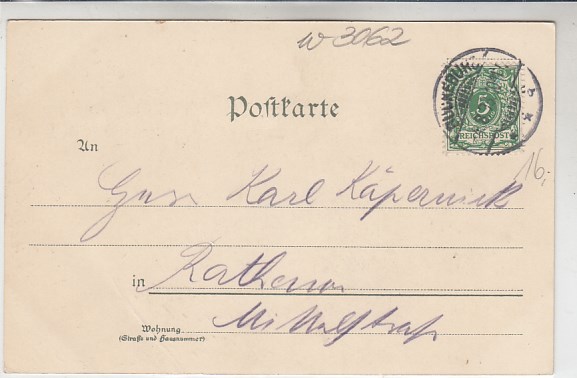 W 3062
BÜCKEBURG
5
REICHSPOST
Postkarte
16,-
An
Karl Käpernick
in
Rathenow
Mittelstraße
Wohnung
(Straße und Hausnummer)